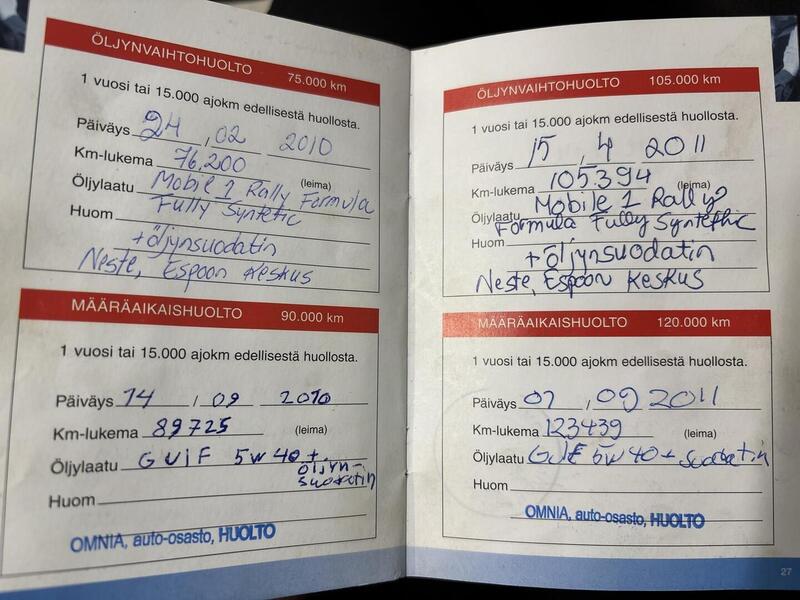 ÖLJYNVAIHTOHUOLTO 75.000 km
1 vuosi tai 15.000 ajokm edellisestä huollosta.
Päiväys 24 / 02 2010
Km-lukema 76,200
Öljylaatu Mobil 1 Rally Formula (leima)
Fully Syntetic
Huom
+öljynsuodatin
Neste, Espoon Keskus
MÄÄRÄAIKAISHUOLTO 90.000 km
1 vuosi tai 15.000 ajokm edellisestä huollosta.
Päiväys 14 / 09 2010
Km-lukema 89725 (leima)
Öljylaatu GUlF 5w40 +
öljyn-
suodatin
Huom
OMNIA, auto-osasto, HUOLTO
ÖLJYNVAIHTOHUOLTO 105.000 km
1 vuosi tai 15.000 ajokm edellisestä huollosta.
Päiväys 15 / 4 2011
Km-lukema 105394 (leima)
Öljylaatu Mobile 1 Rally
Formula Fully Synthethic
Huom
+öljynsuodatin
Neste, Espoon Keskus
MÄÄRÄAIKAISHUOLTO 120.000 km
1 vuosi tai 15.000 ajokm edellisestä huollosta.
Päiväys 07 / 09 2011
Km-lukema 123439 (leima)
Öljylaatu Gulf 5w40 + suodatin
Huom
OMNIA, auto-osasto, HUOLTO
27